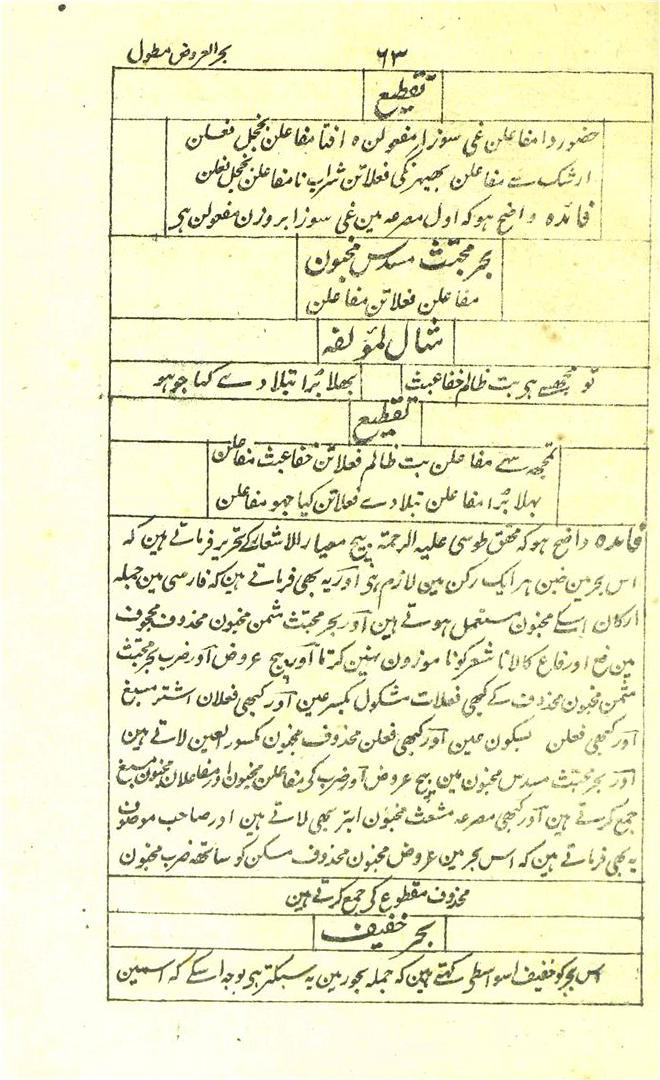 بحر العروض مطول
٦٣
تقطیع
حضور دا مفاعلن غی سوزا مفعولن ہ افتا مفاعلن بخجل فعلن
ارشک سے مفاعلن بھیہرگی فعلاتن شراب نا مفاعلن بخجل فعلن
فائدہ واضح ہو کہ اول مصرعہ مین غی سوزا بروزن مفعولن ہی
بحر مجتث مسدس مخبون
مفاعلن فعلاتن مفاعلن
مثال لمؤلفہ
تو مجھسے ہی بت ظالم خفا عبث
بھلا بُرا تبلا دے کہا جو ہو
تقطیع
تمجھ سے مفاعلن بت ظالم فعلاتن خفا عبث مفاعلن
بہلا بُرا مفاعلن تبلا دے فعلاتن کہا جہو مفاعلن
فائدہ واضح ہو کہ محقق طوسی علیہ الرحمة بیچ معیار الاشعار کے تحریر فرماتے ہین کہ
اس بحر مین خبن ہر ایک رکن مین لازم ہی اور یہ بھی فرماتے ہین کہ فارسی مین جملہ
ارکان اسکے مخبون مستعمل ہوتے ہین اور بحر مجتث مثمن مخبون محذوف مجحوف
مین فع اور فاع کا لانا شعر کو نا موزون نہین کرتا اور بیچ عروض اور ضرب بحر مجتث
مثمن مخبون محذوف کے کبھی فعلات مشکول بکسر عین اور کبھی فعلان اشتر مسبغ
اور کبھی فعلن بسکون عین اور کبھی فعلن محذوف مخبون مکسور العین لاتے ہین
اور بحر مجتث مسدس مخبون مین بیچ عروض اور ضرب کی مفاعلن مخبون اور مفاعلان مخبون مسبغ
جمع کرتے ہین اور کبھی مصرعہ مشعث مخبون ابتر بھی لاتے ہین اور صاحب موصوف
یہ بھی فرماتے ہین کہ اس بحر مین عروض مخبون محذوف مسکن کو ساتھہ ضرب مخبون
محذوف مقطوع کی جمع کرتے ہین
بحر خفیف
اس بحر کو خفیف اسواسطی کہتے ہین کہ جملہ بحور مین یہ سبکتر ہی بوجہ اسکے کہ اسمین